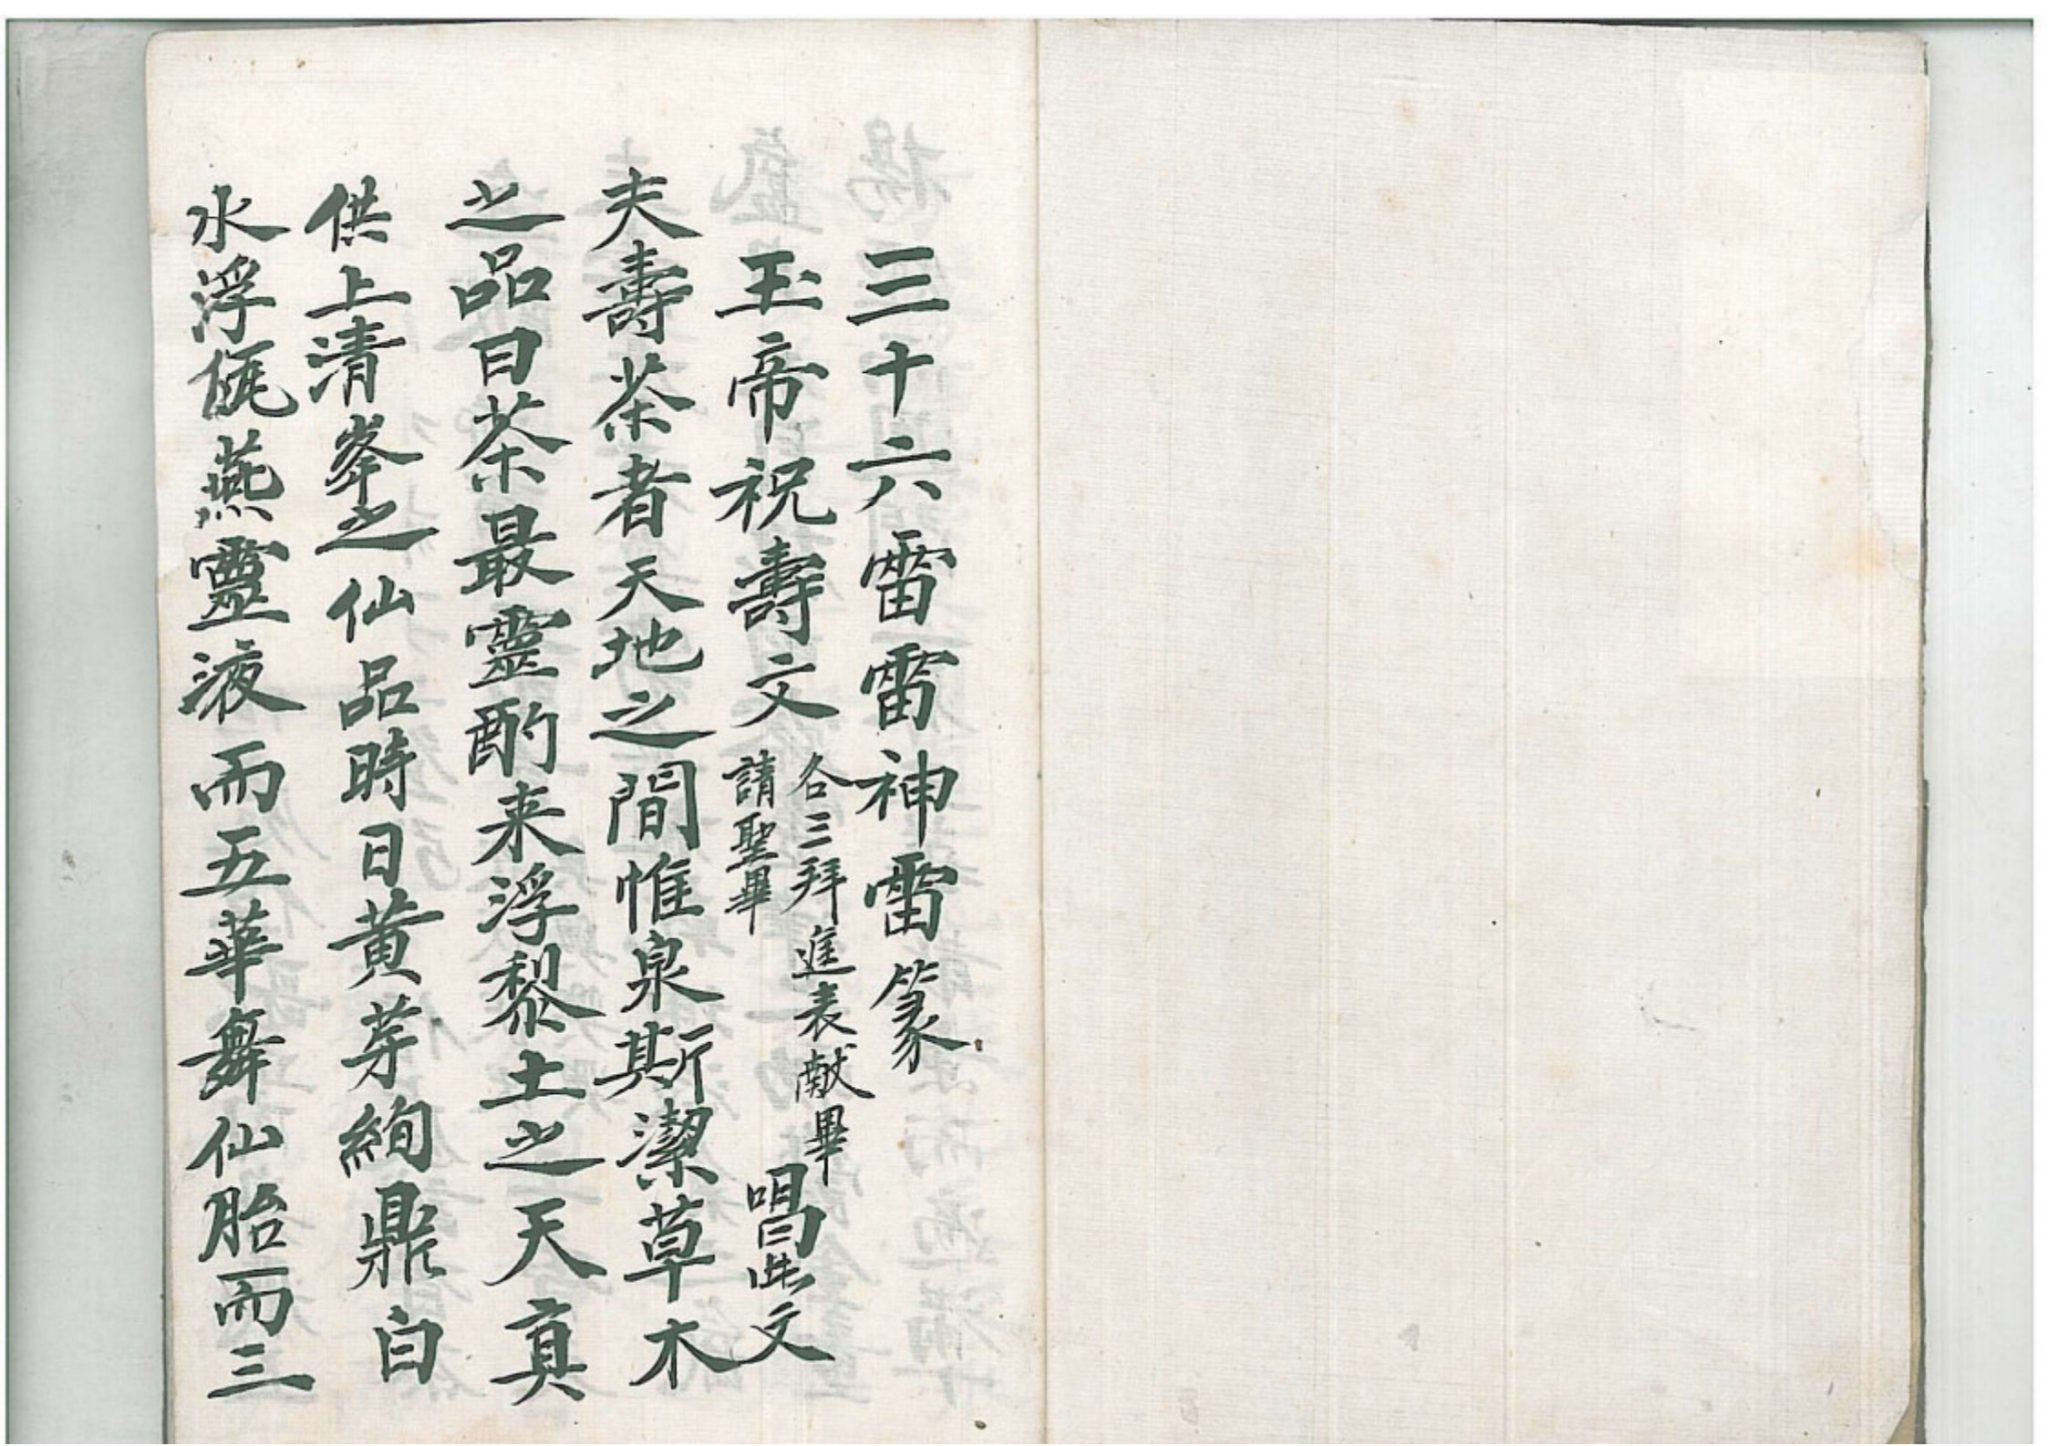 三十六雷雷神雷篆
玉帝祝壽文 請聖畢 各三拜 進表献畢 唱此文
夫壽茶者天地之間惟泉斯潔草木
之品曰茶最靈酌来浮黎土之天真
供上清峯之仙品時日黄芽絢鼎白
水浮甌燕靈液而五華舞仙胎而三